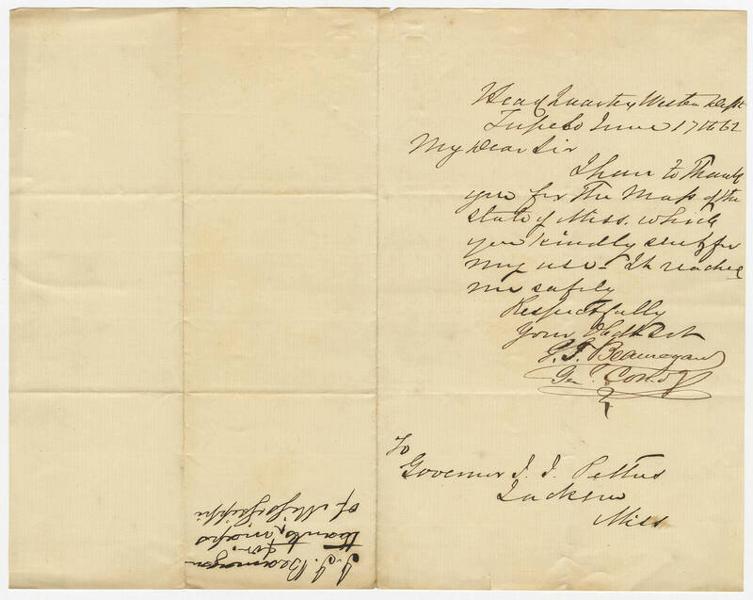 Head Quarters Western Dept
Tupelo June 17th 62
My Dear Sir
I have to thank
you for the map of the
State of Miss. which
you kindly sent for
my use - It reached
me safely
Respectfully
Your Obdt Svt
G. T. Beauregard
Gen. Comdg
To
Governor J. J. Pettus
Jackson
Miss
Beauregard
thanks for
maps
of Mississippi